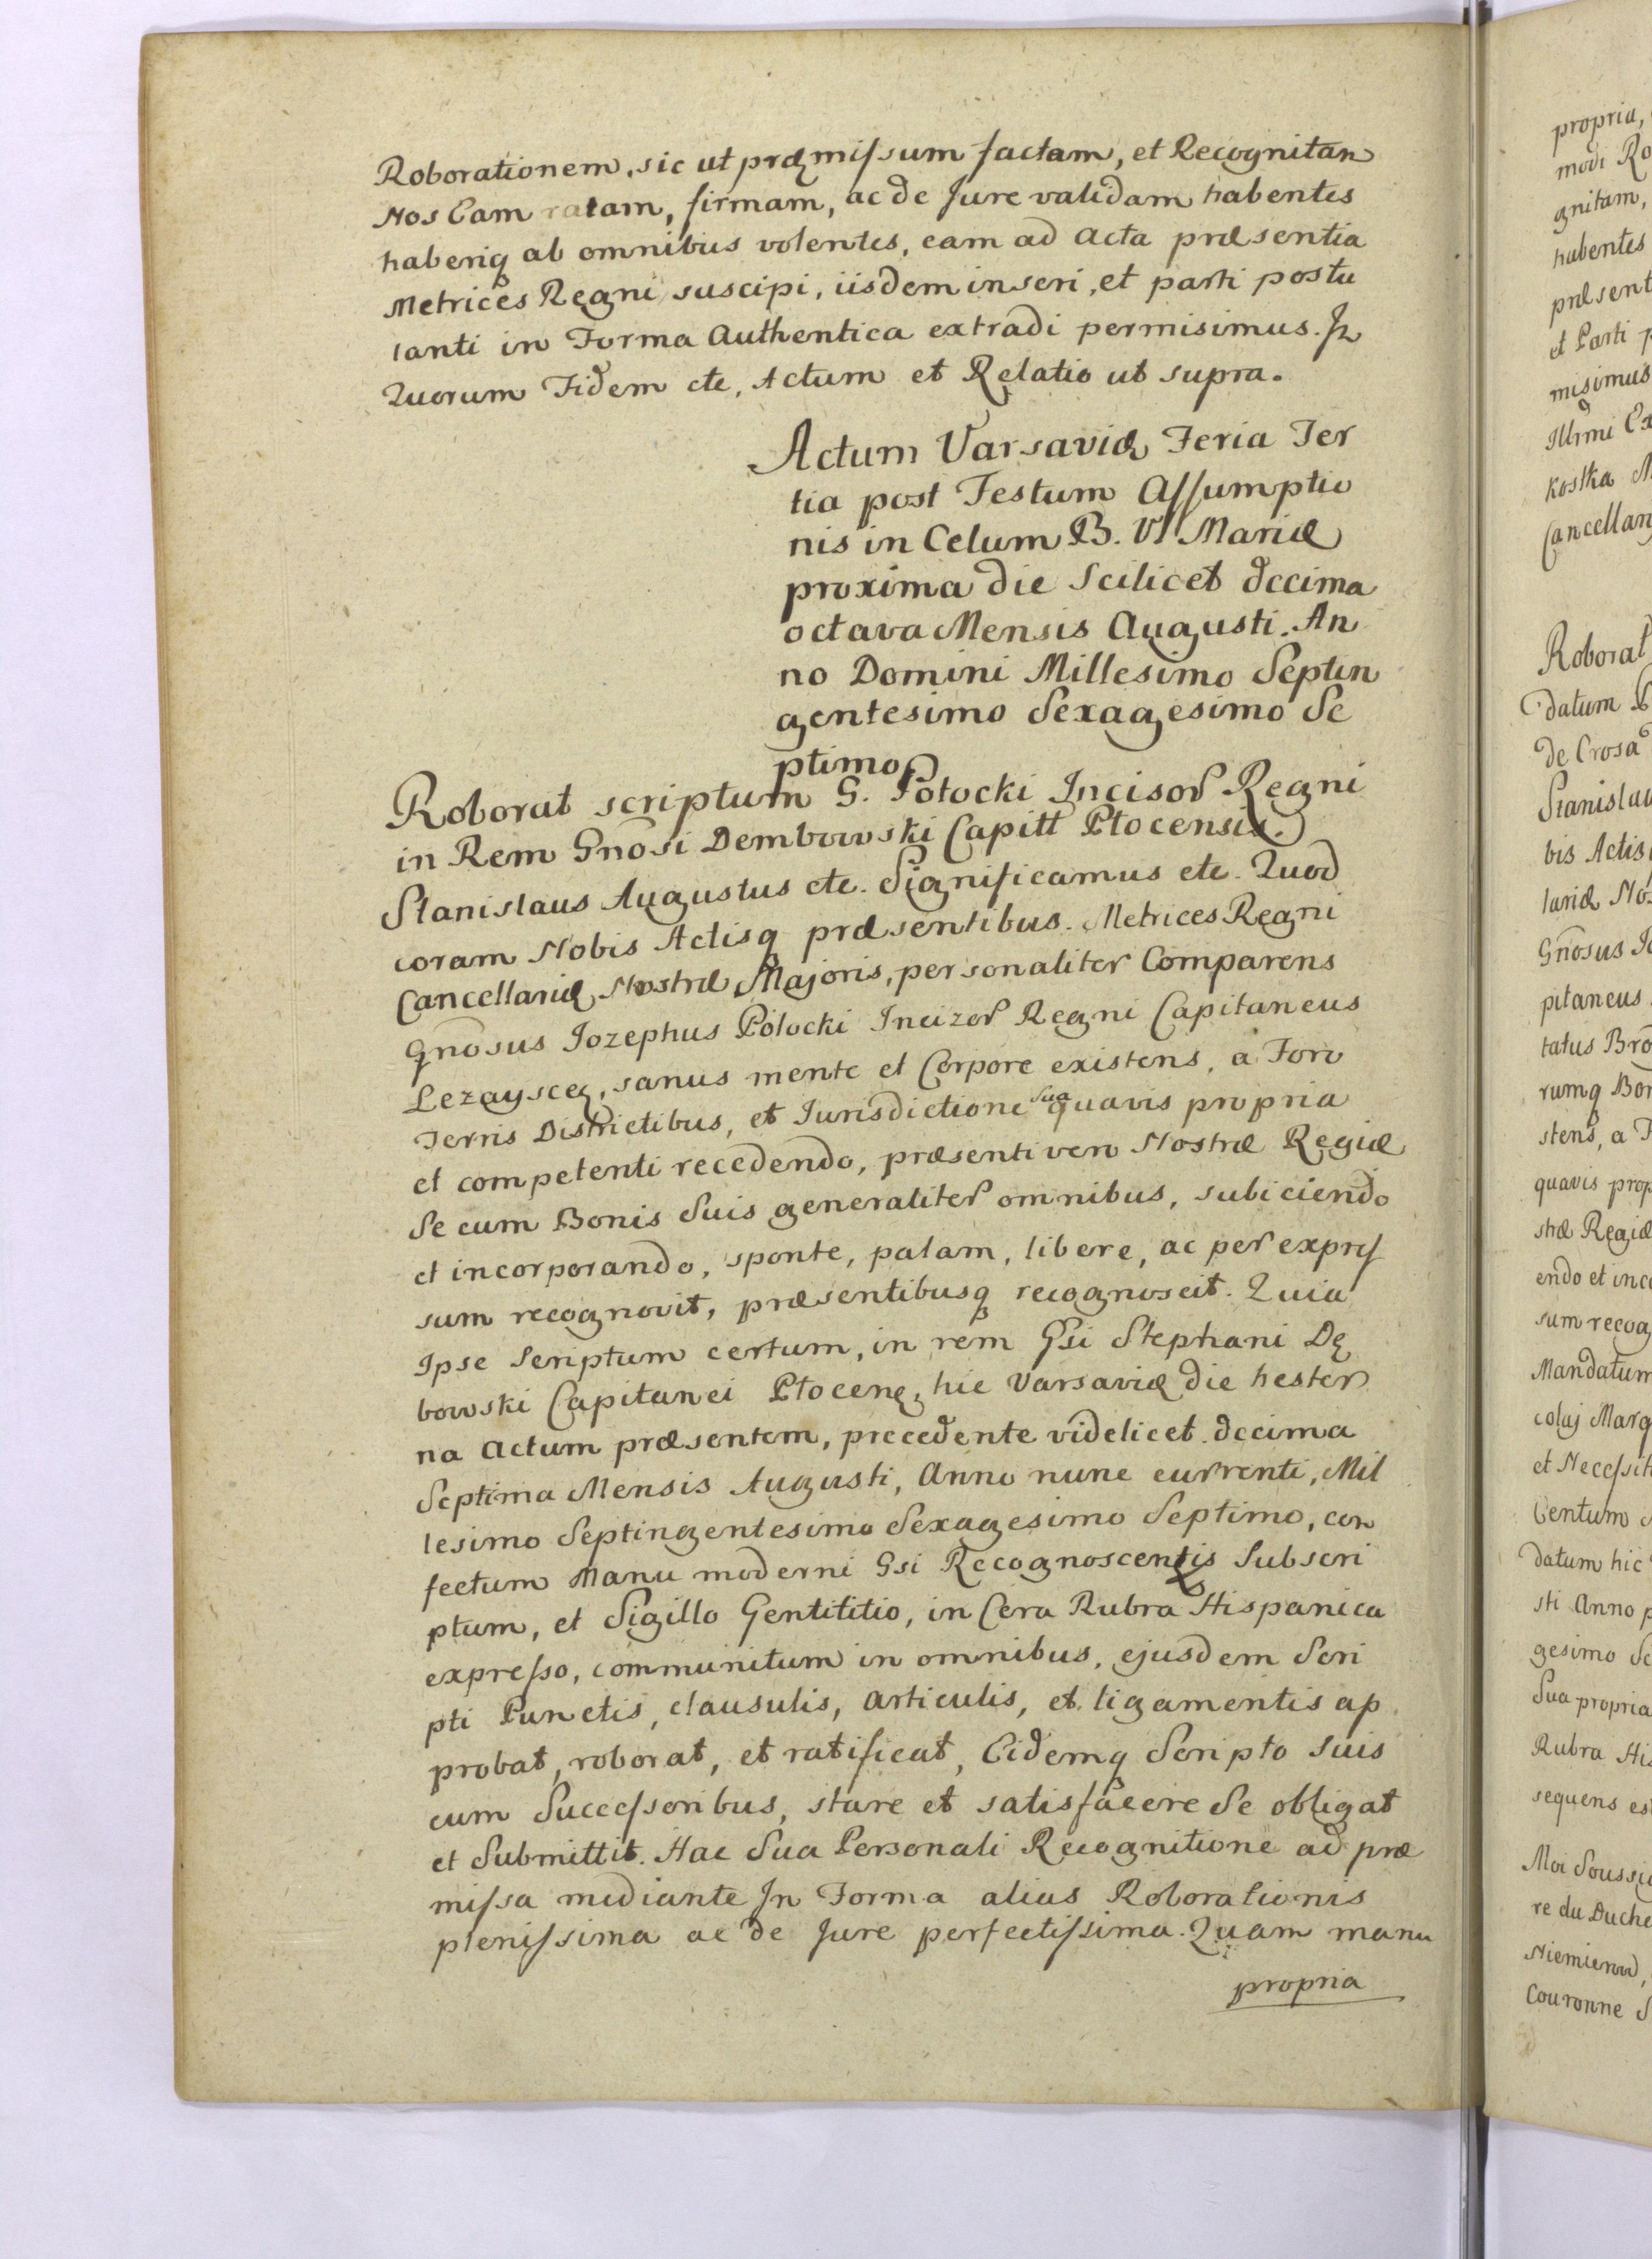 Roborationem, sic ut præmissum factam, et Recognitan
Nos Eam ratam, firmam, ac de Jure validam habentes
haberiq ab omnibus volentes, eam ad Acta præsentia
Metrices Regni suscipi, iisdem inseri, et parti postu
lanti in Forma Authentica extradi permisimus. In
Quorum Fidem etc, Actum et Relatio ut supra.
Actum Varsaviæ Feria Ter
tia post Festum Assumptio
nis in Celum B. V. Mariæ
proxima die Scilicet decima
octava Mensis Augusti. An
no Domini Millesimo Septin
gentesimo Sexagesimo Se
ptimo
Roborat scriptum G. Potocki Incisor Regni
in Rem Gnosi Dembowski Capitt Plocensis.
Stanislaus Augustus etc. Significamus etc. Quod
coram Nobis Actisq præsentibus. Metrices Regni
Cancellariæ Nostræ Majoris, personaliter Comparens
Gnosus Jozephus Potocki Incizor Regni Capitaneus
Lezayscen, sanus mente et Corpore existens, a Foro
Terris Districtibus, et Jurisdictione sua quavis propria
et competenti recedendo, præsenti vero Nostræ Regiæ
Se cum Bonis Suis generaliter omnibus, subiciendo
et incorporando, sponte, palam, libere, ac per expres
sum recognovit, præsentibusq recognoscit. Quia
Ipse Scriptum certum, in rem Gsi Stephani Dę
bowski Capitanei Plocen, hic Varsaviæ die hester
na Actum præsentem, precedente videlicet decima
Septima Mensis Augusti, Anno nunc currenti, Mil
lesimo Septingentesimo Sexagesimo Septimo, con
fectum Manu moderni Gsi Recognoscentis Subscri
ptum, et Sigillo Gentilitio, in Cera Rubra Hispanica
expresso, communitum in omnibus, ejusdem Scri
pti Punctis, clausulis, articulis, et ligamentis ap
probat, roborat, et ratificat, Eidemq Scripto Suis
cum Successoribus, stare et satisfacere Se obligat
et Submittit. Hac Sua Personali Recognitione ad præ
missa mediante In Forma alias Roborationis
plenissima ac de Jure perfectissima. Quam manu
propria
propria,
modi Ro
gnitam,
habentes
præsent
et Parti p
misimus
Illmi Ex
Kostka M
Cancellari
Roborat
datum P
de Crosa
Stanislau
bis Actis
lariæ Nos
Gnosus Jo
pitaneus
tatus Bro
rumq Bon
stens, a F
quavis prop
stræ Regiæ
endo et inco
sum recog
Mandatum
colaj Marq
et Necessit
Centum
datum hic
sti Anno p
gesimo Se
Sua propria
Rubra His
sequens est
Moi Soussig
re du Duche
Niemierow,
Couronne S